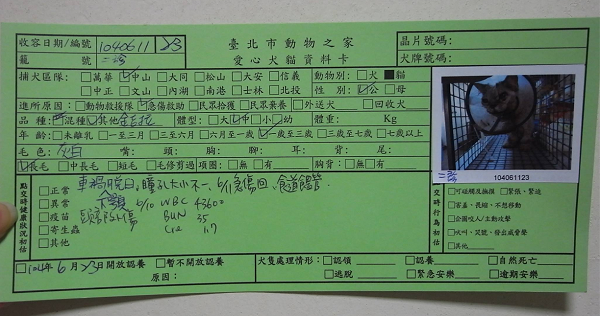 收容日期/編號 1040611 23 臺北市動物之家 晶片號碼:
籠 號 二 愛心犬貓資料卡 犬牌號碼:
捕犬區隊: □萬華 ☑中山 □大同 □松山 □大安 □信義 動物別: □犬 ■貓
□中正 □文山 □內湖 □南港 □士林 □北投 性別: ☑公 □母
進所原因: □動物救援隊 ☑急傷救助 □民眾拾獲 □民眾棄養 □外送犬 □回收犬
品 種: □混種 ☑其他 金吉拉 體型: □大 ☑中 □小 □幼 體重: Kg
年 齡: □未離乳 □一至三月 □三至六月 □六月至一歲 ☑一歲至三歲 □三歲至七歲 □七歲以上
毛 色: 灰白 嘴: 頭: 胸: 腳: 耳: 背: 尾:
☑長毛 □中長毛 □短毛 □毛修剪過 項圈: □無 □有 胸背: □無 □有
104061123
點交時健康狀況初估
□正常 車禍脫臼, 瞳孔大小不一, 6/11急傷回, 食道餵管.
□異常 下顎 6/10 WBC 43600
□疫苗 BUN 35
□寄生蟲 Cre 1.7
□其他
點交時行為初估
□可碰觸及撫摸 □緊張、緊迫
□害羞、畏縮、不想移動
□企圖咬人/主動攻擊
□吠叫、哭號、發出威脅聲
□其他
□104年6月23日開放認養 □暫不開放認養 犬隻處理情形: □認領 □認養 □自然死亡
原因: □逃脫 □緊急安樂 □逾期安樂